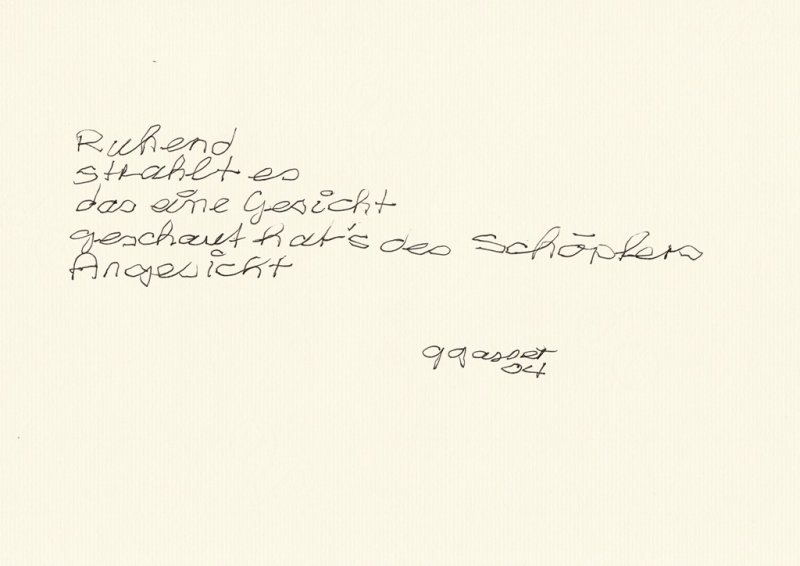 Ruhend
strahlt es
das eine Gesicht
geschaut hat's des Schöpfers
Angesicht
ggasset
04